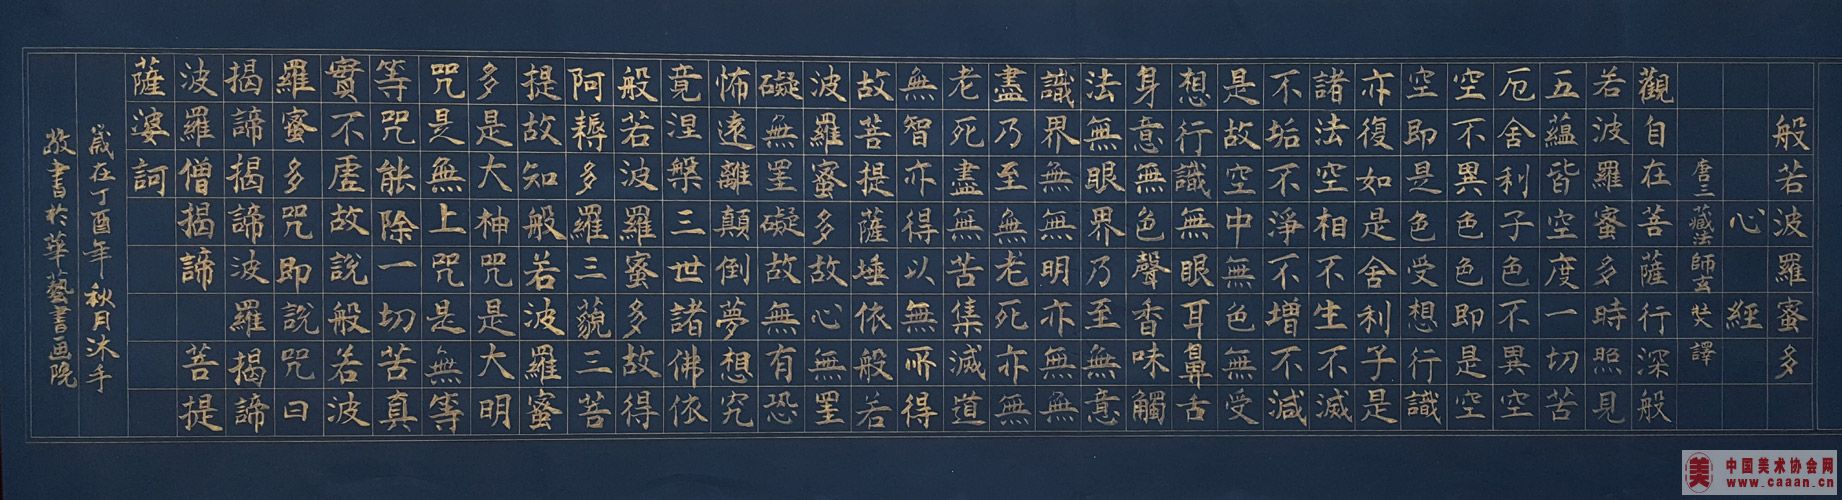 般若波羅蜜多
心經
唐三藏法師玄奘譯
觀自在菩薩行深般
若波羅蜜多時照見
五蘊皆空度一切苦
厄舍利子色不異空
空不異色色即是空
空即是色受想行識
亦復如是舍利子是
諸法空相不生不滅
不垢不淨不增不減
是故空中無色無受
想行識無眼耳鼻舌
身意無色聲香味觸
法無眼界乃至無意
識界無無明亦無無
盡乃至無老死亦無
老死盡無苦集滅道
無智亦得以無所得
故菩提薩埵依般若
波羅蜜多故心無罣
礙無罣礙故無有恐
怖遠離顛倒夢想究
竟涅槃三世諸佛依
般若波羅蜜多故得
阿耨多羅三藐三菩
提故知般若波羅蜜
多是大神咒是大明
咒是無上咒是無等
等咒能除一切苦真
實不虛故說般若波
羅蜜多咒即說咒曰
揭諦揭諦波羅揭諦
波羅僧揭諦 菩提
薩婆訶
歲在丁酉年秋月沐手
敬書於華藝書画院
美
中国美术协会网
www.caaan.cn